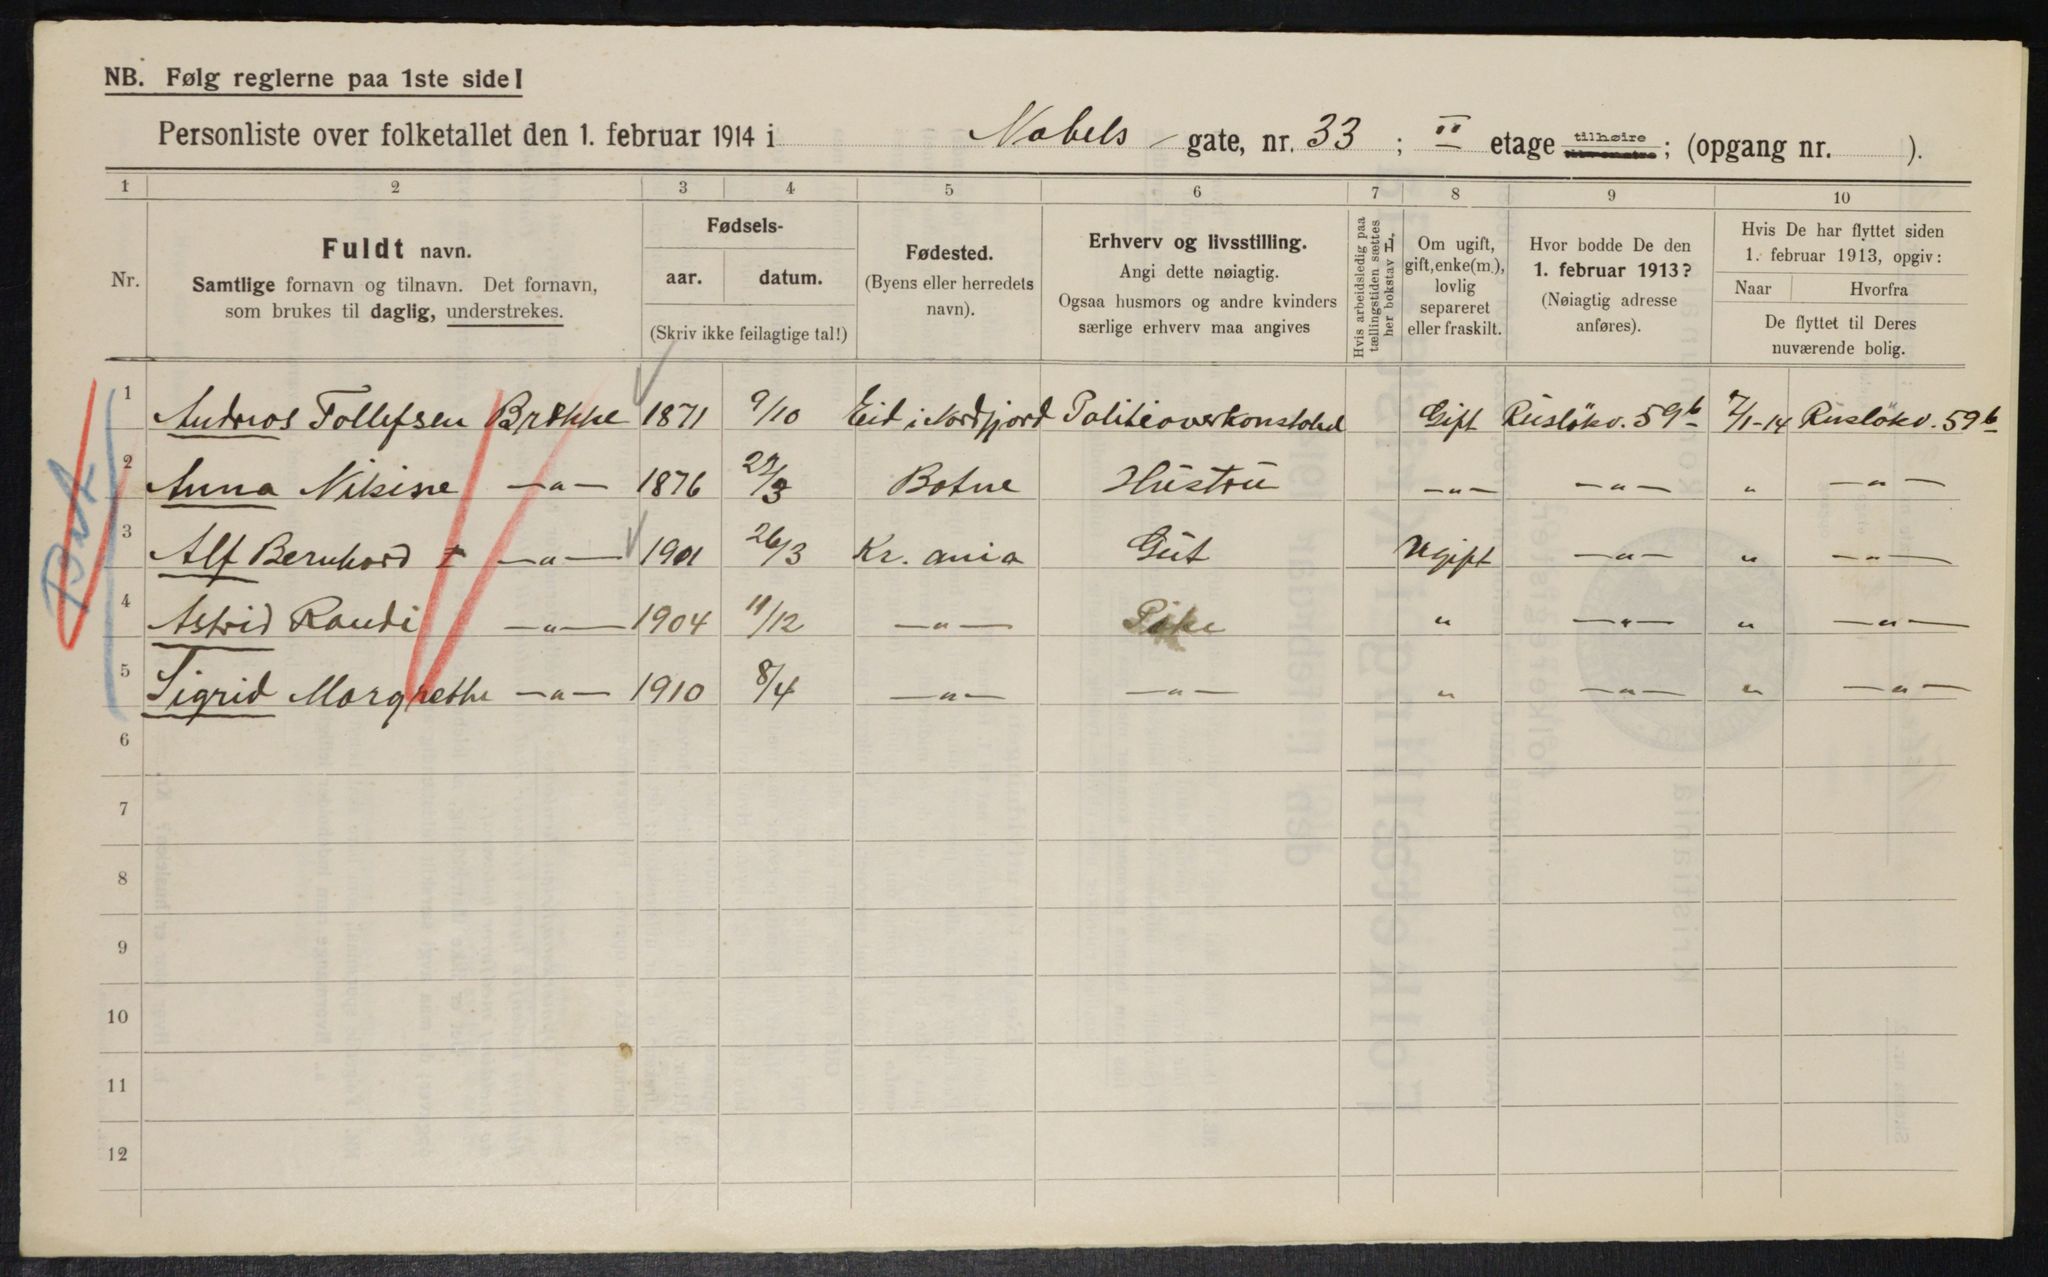 NB. Følg reglerne paa 1ste side!
Personliste over folketallet den 1. februar 1914 i Nobels gate, nr. 33 ; II etage tilhøire ; (opgang nr. ).
1 2 3 4 5 6 7 8 9 10
Nr.
Fuldt navn.
Samtlige fornavn og tilnavn. Det fornavn,
som brukes til daglig, understrekes.
Fødsels-
aar. datum.
(Skriv ikke feilagtige tal!)
Fødested.
(Byens eller herredets
navn).
Erhverv og livsstilling.
Angi dette nøiagtig.
Ogsaa husmors og andre kvinders
særlige erhverv maa angives
Hvis arbeidsledig paa
tællingstiden sættes
her bokstav L.
Om ugift,
gift, enke(m.),
lovlig
separeret
eller fraskilt.
Hvor bodde De den
1. februar 1913?
(Nøiagtig adresse
anføres).
Hvis De har flyttet siden
1. februar 1913, opgiv:
Naar Hvorfra
De flyttet til Deres
nuværende bolig.
1 Andreas Tollefsen Brække 1871 9/10 Eid i Nordfjord Politioverkonstabel Gift Rusløkv. 59b 7/1-14 Rusløkv. 59b
2 Anna Nikisne —„— 1876 /3 Botne Hustru —„— —„— „ —„—
3 Alf Bernhard —„— 1901 26/3 Kr. ania Gut Ugift —„— „ —„—
4 Astrid Randi —„— 1904 11/12 —„— Pike „ —„— „ —„—
5 Sigrid Margrethe —„— 1910 8/4 —„— —„— „ —„— „ —„—
6
7
8
9
10
11
12